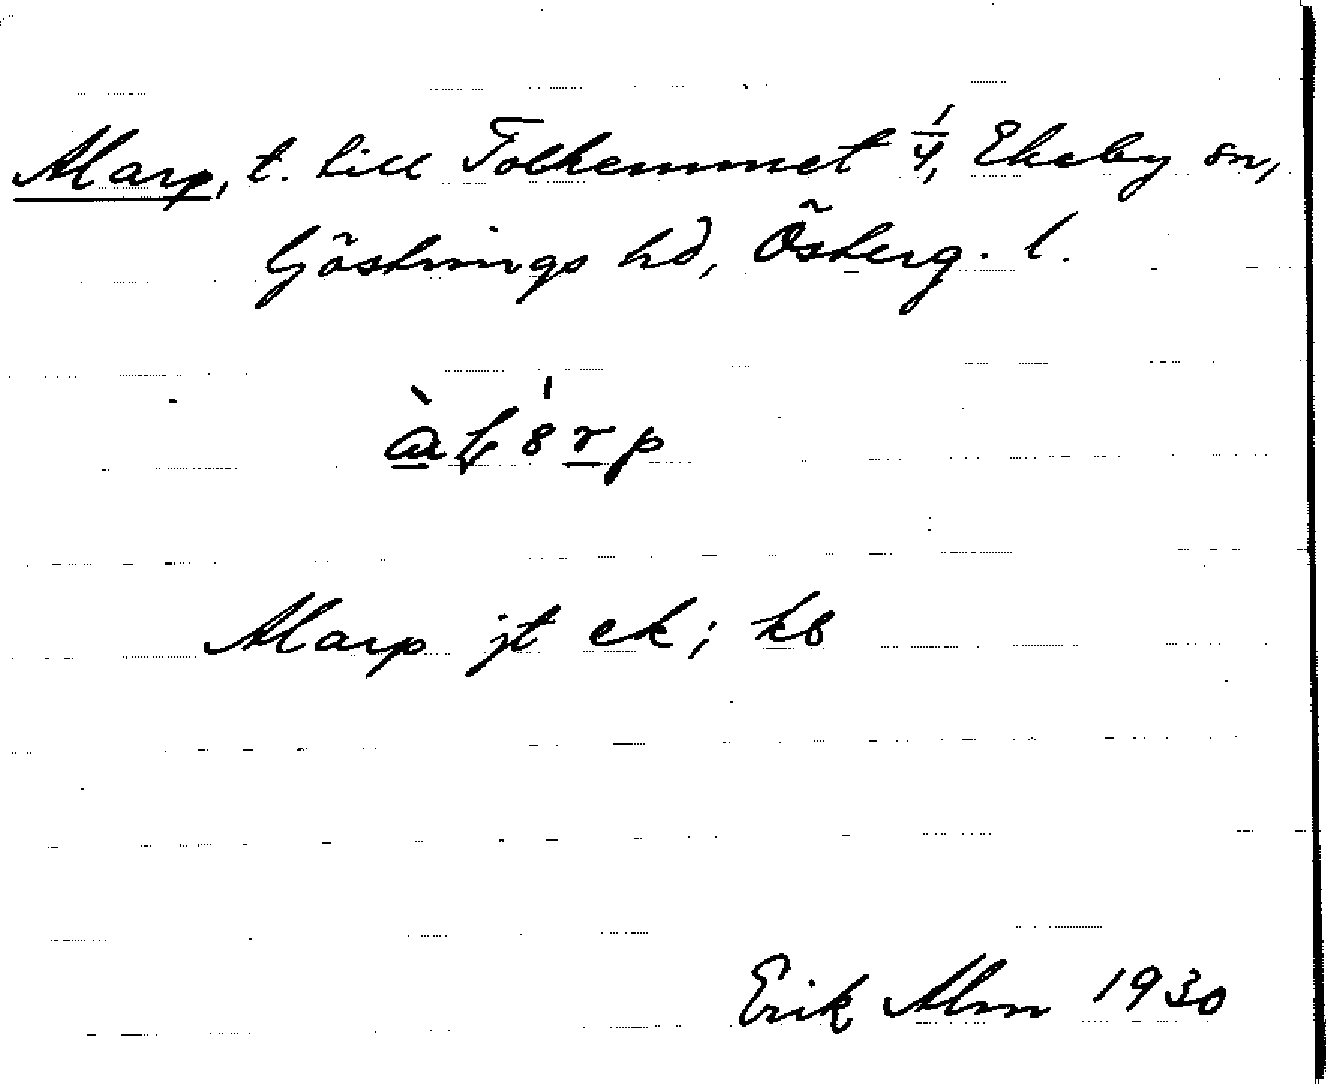 Alarp, t. till Folkemmet 1/4, Ekeby sn,
Göstrings hd, Österg. l.
Alarp jt ek; kb
Erik Alm 1930